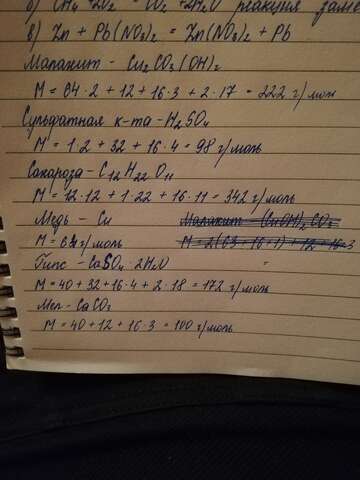 б) CH₄ + 2O₂ = CO₂ + 2H₂O реакция заме
в) Zn + Pb(NO₃)₂ = Zn(NO₃)₂ + Pb
Малахит - Cu₂CO₃(OH)₂
M = 64·2 + 12 + 16·3 + 2·17 = 222 г/моль
Сульфатная к-та - H₂SO₄
M = 1·2 + 32 + 16·4 = 98 г/моль
Сахароза - C₁₂H₂₂O₁₁
M = 12·12 + 1·22 + 16·11 = 342 г/моль
Медь - Cu Малахит - (CuOH)₂CO₃
M = 64 г/моль M = 2(63+16+1) + 12 + 16·3
Гипс - CaSO₄·2H₂O
M = 40 + 32 + 16·4 + 2·18 = 172 г/моль
Мел - CaCO₃
M = 40 + 12 + 16·3 = 100 г/моль